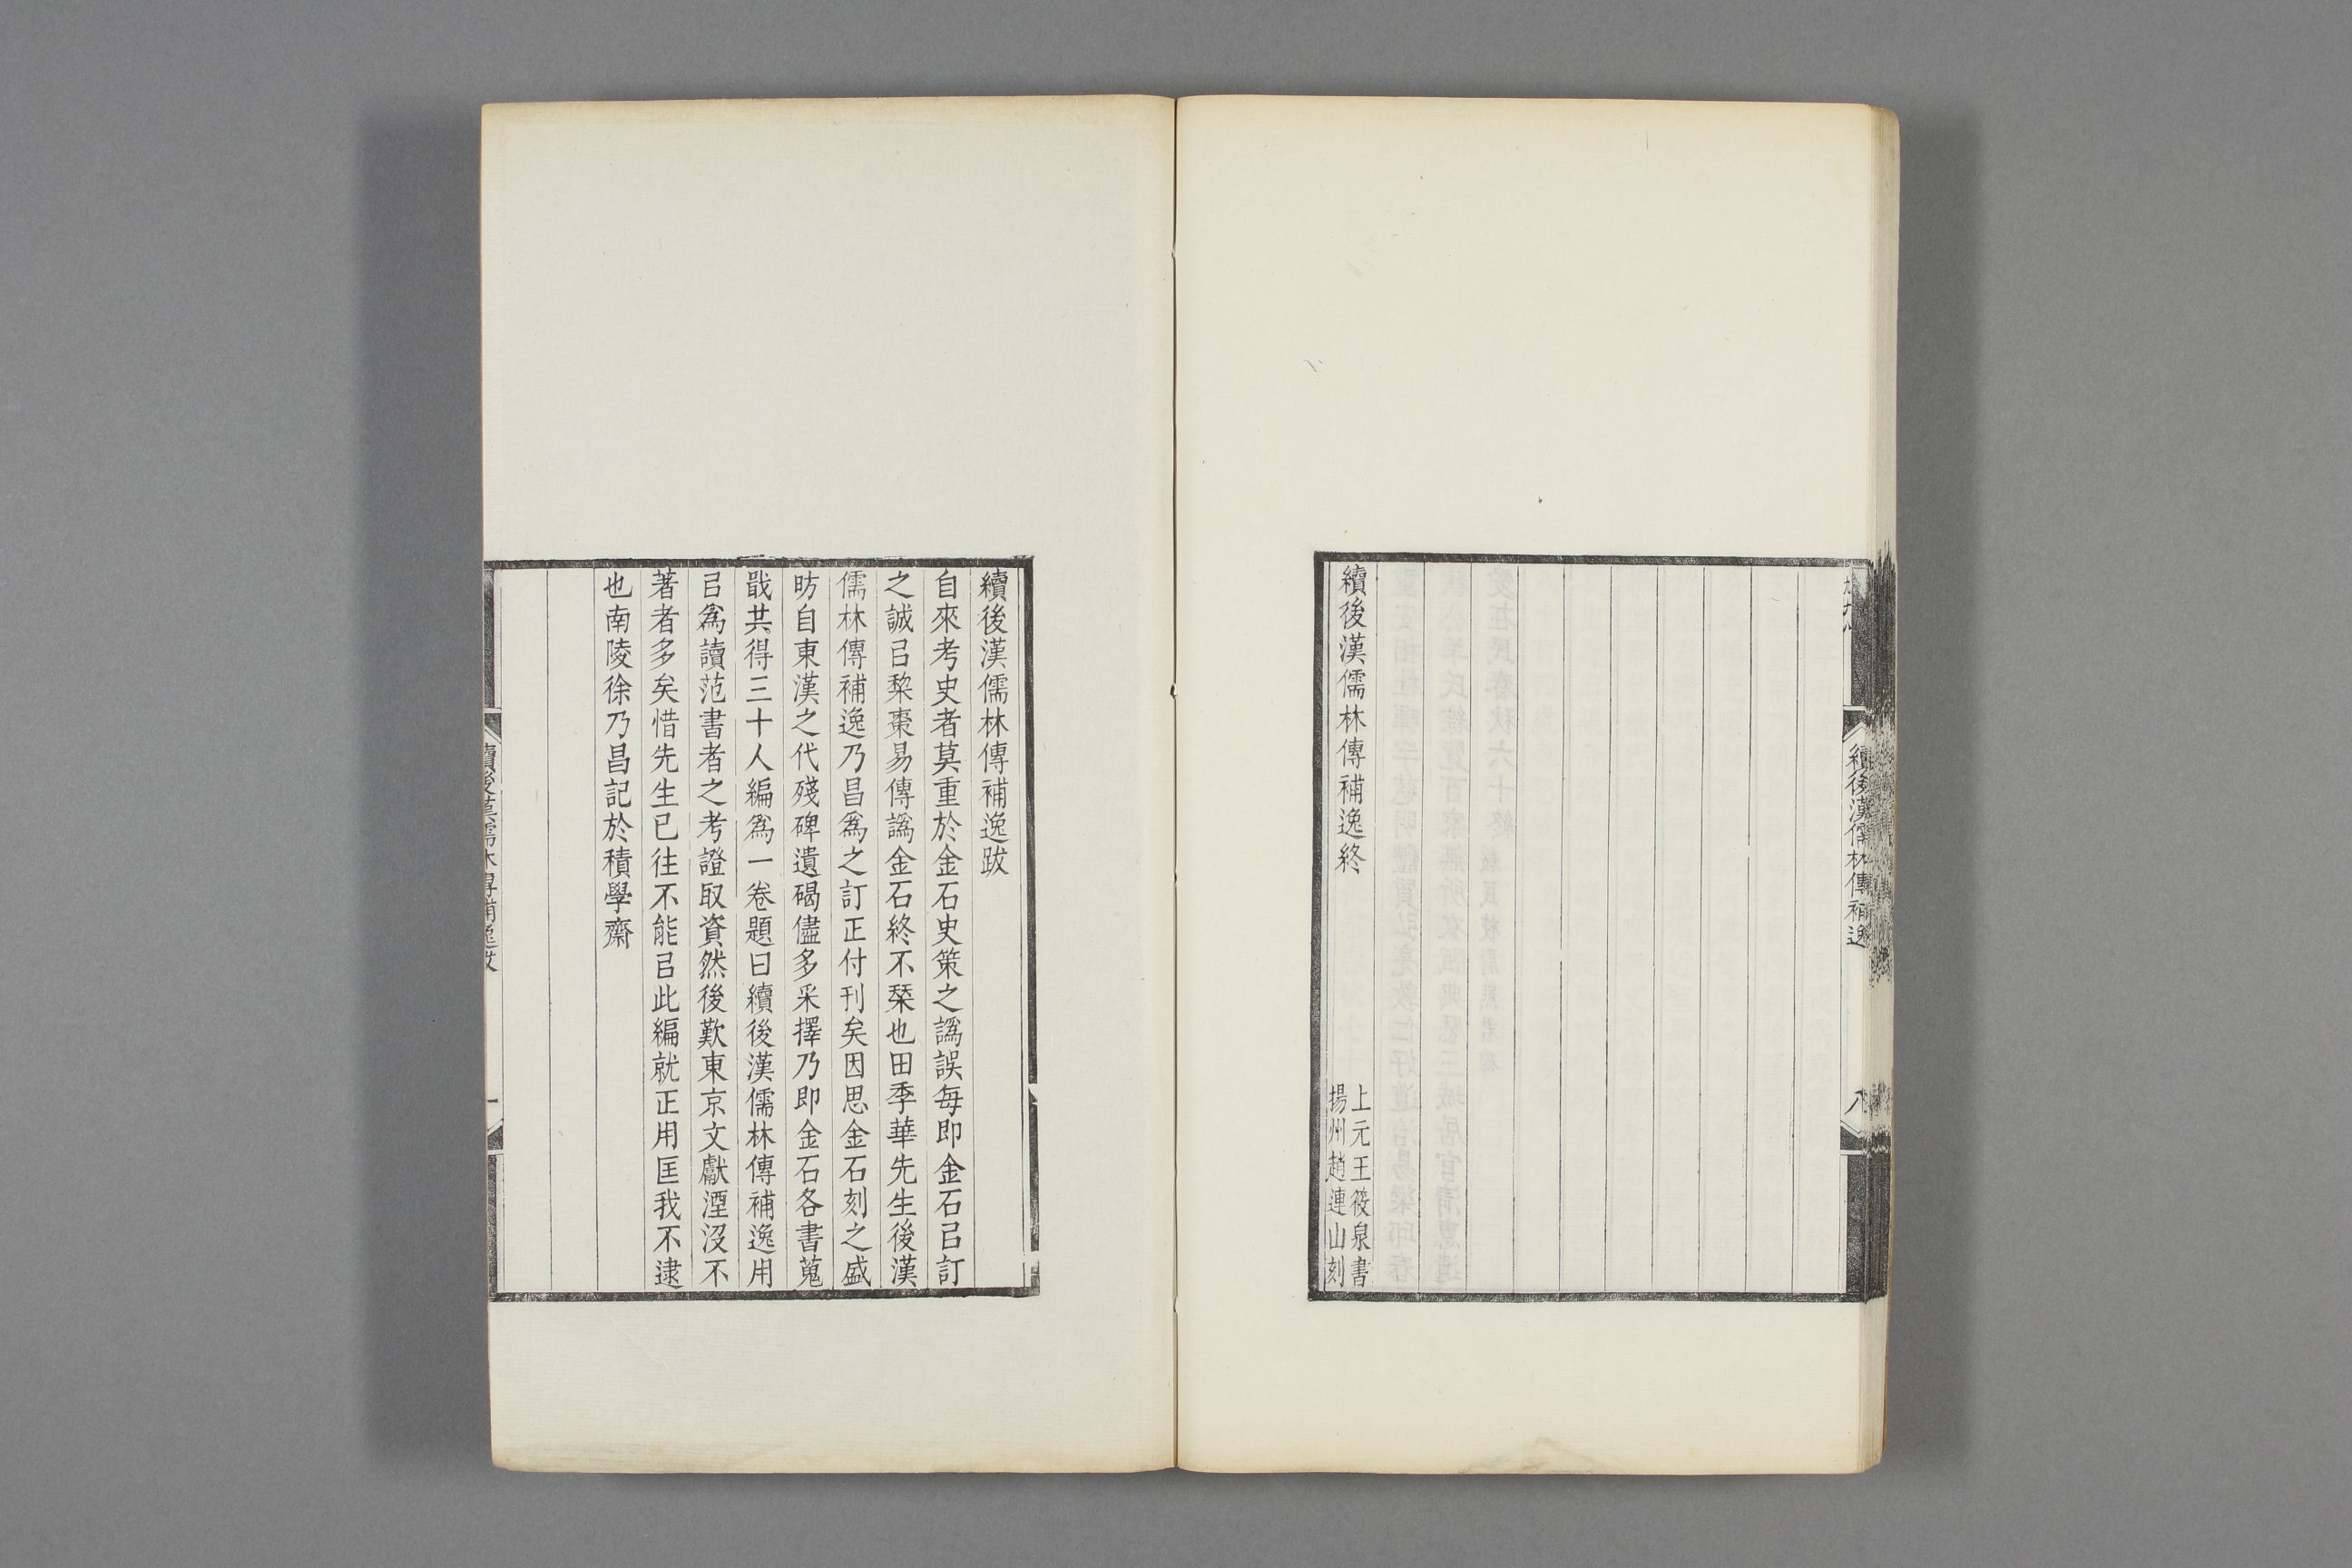 續後漢儒林傳補逸
八
續後漢儒林傳補逸終
上元王筱泉書
揚州趙連山刻
續後漢儒林傳補逸跋
自來考史者莫重於金石史策之譌誤每即金石㠯訂
之誠㠯棃棗易傳譌金石終不琹也田季華先生後漢
儒林傳補逸乃昌爲之訂正付刊矣因思金石刻之盛
昉自東漢之代殘碑遺碣儘多采擇乃即金石各書蒐
戢共得三十人編爲一卷題曰續後漢儒林傳補逸用
㠯爲讀范書者之考證取資然後歎東京文獻湮沒不
著者多矣惜先生已往不能㠯此編就正用匡我不逮
也南陵徐乃昌記於積學齋
續後漢儒林傳補逸跋
一